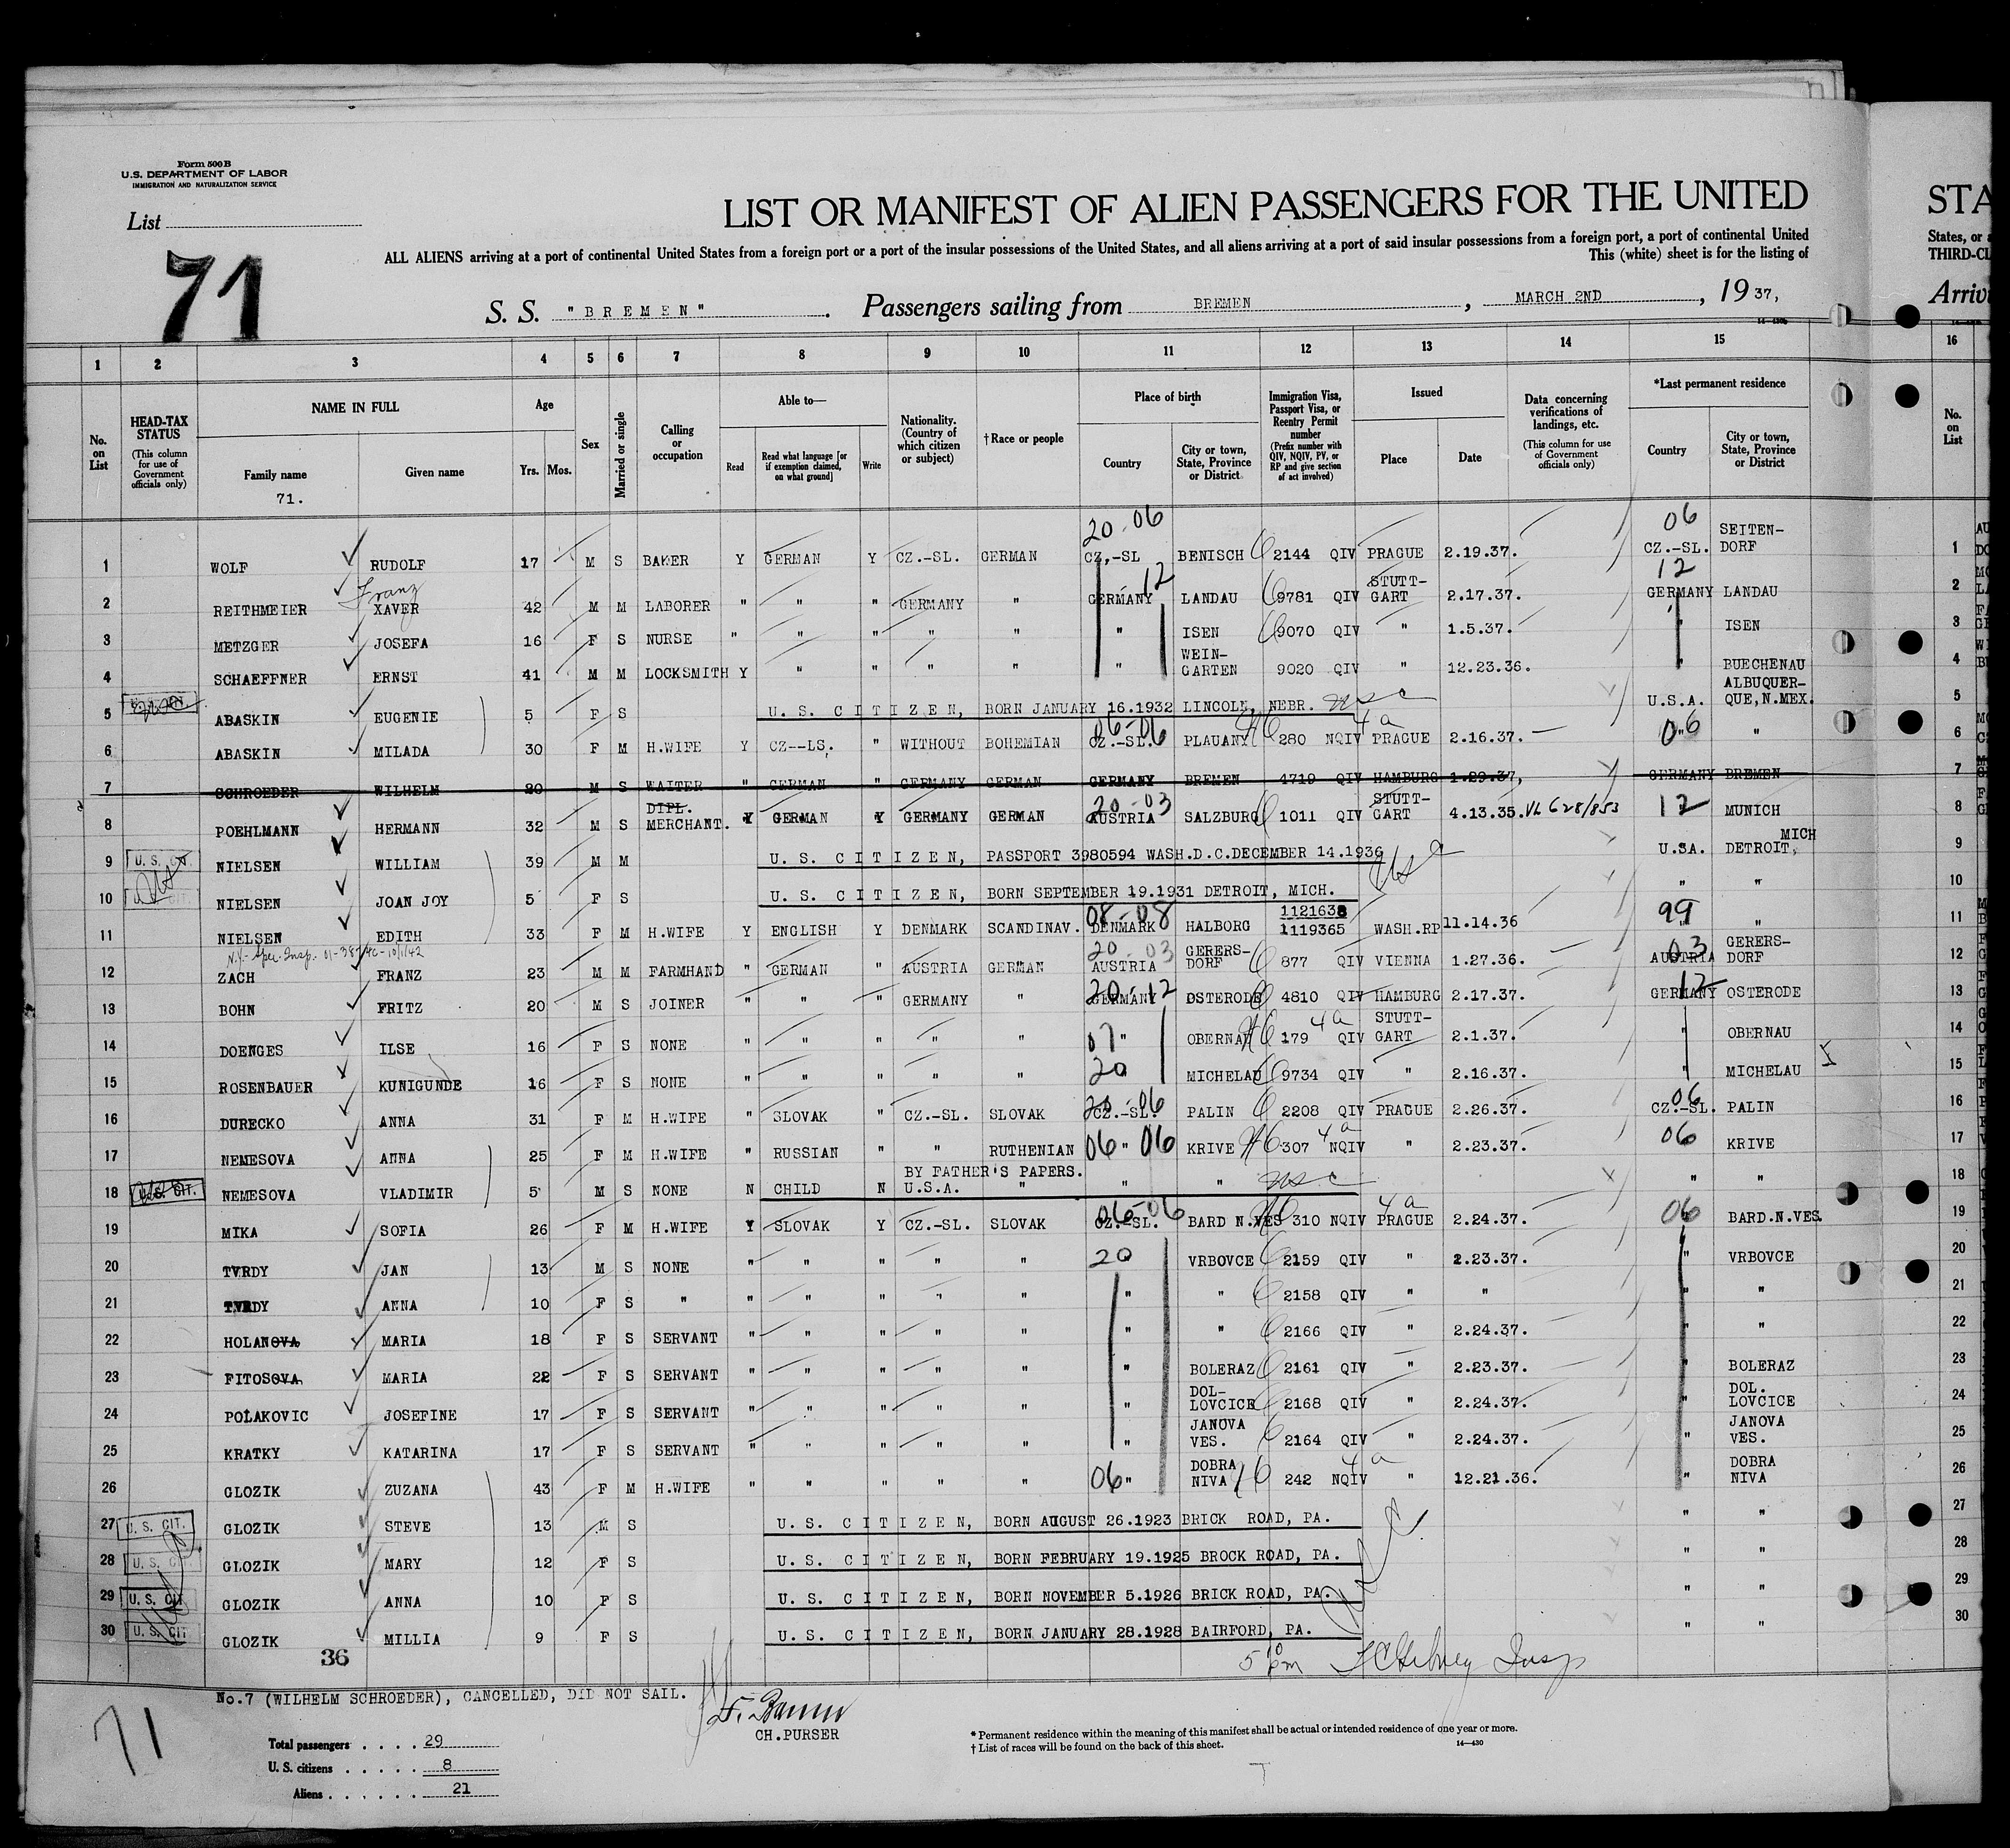 Form 500 B
U.S. DEPARTMENT OF LABOR
IMMIGRATION AND NATURALIZATION SERVICE
List
71
LIST OR MANIFEST OF ALIEN PASSENGERS FOR THE UNITED
STA
ALL ALIENS arriving at a port of continental United States from a foreign port or a port of the insular possessions of the United States, and all aliens arriving at a port of said insular possessions from a foreign port, a port of continental United
States, or a
This (white) sheet is for the listing of
THIRD-CL
S. S. "BREMEN". Passengers sailing from BREMEN, MARCH 2ND, 1937,
Arriv
1 2 3 4 5 6 7 8 9 10 11 12 13 14 15 16
No. on List
HEAD-TAX STATUS (This column for use of Government officials only)
NAME IN FULL
Family name
71.
Given name
Age
Yrs. Mos.
Sex
Married or single
Calling or occupation
Able to—
Read
Read what language [or if exemption claimed, on what ground]
Write
Nationality. (Country of which citizen or subject)
†Race or people
Place of birth
Country
City or town, State, Province or District
Immigration Visa, Passport Visa, or Reentry Permit number (Prefix number with QIV, NQIV, PV, or RP and give section of act involved)
Issued
Place
Date
Data concerning verifications of landings, etc. (This column for use of Government officials only)
*Last permanent residence
Country
City or town, State, Province or District
No. on List
1 WOLF RUDOLF 17 M S BAKER Y GERMAN Y CZ.-SL. GERMAN 20-06 CZ,-SL BENISCH 2144 QIV PRAGUE 2.19.37. 06 CZ.-SL. SEITEN-DORF 1
2 REITHMEIER Franz XAVER 42 M M LABORER " " " GERMANY " GERMANY 12 LANDAU 9781 QIV STUTT-GART 2.17.37. 12 GERMANY LANDAU 2
3 METZGER JOSEFA 16 F S NURSE " " " " " " ISEN 9070 QIV " 1.5.37. " ISEN 3
4 SCHAEFFNER ERNST 41 M M LOCKSMITH Y " " " " " WEIN-GARTEN 9020 QIV " 12.23.36. " BUECHENAU 4
5 ABASKIN EUGENIE 5 F S U. S. CITIZEN, BORN JANUARY 16.1932 LINCOLN, NEBR. U.S.A. ALBUQUER-QUE,N.MEX. 5
6 ABASKIN MILADA 30 F M H.WIFE Y CZ--LS. " WITHOUT BOHEMIAN 06-06 CZ.-SL. PLAUANY 280 NQIV 4a PRAGUE 2.16.37. 06 " " 6
7 SCHROEDER WILHELM 20 M S WAITER " GERMAN " GERMANY GERMAN GERMANY BREMEN 4719 QIV HAMBURG 1.29.37, GERMANY BREMEN 7
8 POEHLMANN HERMANN 32 M S DIPL. MERCHANT. Y GERMAN Y GERMANY GERMAN 20-03 AUSTRIA SALZBURG 1011 QIV STUTT-GART 4.13.35. VL 628/853 12 MUNICH 8
9 U. S. CIT. NIELSEN WILLIAM 39 M M U. S. CITIZEN, PASSPORT 3980594 WASH.D.C.DECEMBER 14.1936 U.SA. DETROIT, MICH 9
10 NIELSEN JOAN JOY 5 F S U. S. CITIZEN, BORN SEPTEMBER 19.1931 DETROIT, MICH. " " 10
11 NIELSEN EDITH 33 F M H.WIFE Y ENGLISH Y DENMARK SCANDINAV. 08-08 DENMARK HALBORG 1121638 1119365 WASH.RP 11.14.36 99 " 11
12 ZACH FRANZ 23 M M FARMHAND " GERMAN " AUSTRIA GERMAN 20 03 AUSTRIA GERERS-DORF 877 QIV VIENNA 1.27.36. 03 AUSTRIA GERERS-DORF 12
13 BOHN FRITZ 20 M S JOINER " " " GERMANY " 20-12 GERMANY OSTERODE 4810 QIV HAMBURG 2.17.37. 12 GERMANY OSTERODE 13
14 DOENGES ILSE 16 F S NONE " " " " " 07 " OBERNAU 179 4a QIV STUTT-GART 2.1.37. " OBERNAU 14
15 ROSENBAUER KUNIGUNDE 16 F S NONE " " " " " 20 MICHELAU 9734 QIV " 2.16.37. " MICHELAU 15
16 DURECKO ANNA 31 F M H.WIFE " SLOVAK " CZ.-SL. SLOVAK 20-06 CZ.-SL. PALIN 2208 QIV PRAGUE 2.26.37. 06 CZ.-SL. PALIN 16
17 NEMESOVA ANNA 25 F M H.WIFE " RUSSIAN " " RUTHENIAN 06 " 06 KRIVE 307 4a NQIV " 2.23.37. 06 KRIVE 17
18 U.S. CIT. NEMESOVA VLADIMIR 5 M S NONE N CHILD N BY FATHER'S PAPERS. U.S.A. " " " " " 18
19 MIKA SOFIA 26 F M H.WIFE Y SLOVAK Y CZ.-SL. SLOVAK 06-06 CZ.-SL. BARD N.VES 310 NQIV 4a PRAGUE 2.24.37. 06 BARD.N.VES. 19
20 TVRDY JAN 13 M S NONE " " " " " 20 VRBOVCE 2159 QIV " 2.23.37. " VRBOVCE 20
21 TVRDY ANNA 10 F S " " " " " " " " 2158 QIV " " " " 21
22 HOLANOVA MARIA 18 F S SERVANT " " " " " " " 2166 QIV " 2.24.37. " " 22
23 FITOSOVA MARIA 22 F S SERVANT " " " " " " BOLERAZ 2161 QIV " 2.23.37. " BOLERAZ 23
24 POLAKOVIC JOSEFINE 17 F S SERVANT " " " " " " DOL-LOVCICE 2168 QIV " 2.24.37. " DOL. LOVCICE 24
25 KRATKY KATARINA 17 F S SERVANT " " " " " " JANOVA VES. 2164 QIV " 2.24.37. " JANOVA VES. 25
26 GLOZIK ZUZANA 43 F M H.WIFE " " " " " 06 " DOBRA NIVA 242 NQIV 4a " 12.21.36. " DOBRA NIVA 26
27 U. S. CIT. GLOZIK STEVE 13 M S U. S. CITIZEN, BORN AUGUST 26.1923 BRICK ROAD, PA. " " 27
28 U. S. CIT. GLOZIK MARY 12 F S U. S. CITIZEN, BORN FEBRUARY 19.1925 BROCK ROAD, PA. " " 28
29 U. S. CIT GLOZIK ANNA 10 F S U. S. CITIZEN, BORN NOVEMBER 5.1926 BRICK ROAD, PA. " " 29
30 U. S. CIT GLOZIK MILLIA 9 F S U. S. CITIZEN, BORN JANUARY 28.1928 BAIRFORD, PA. " " 30
36
No.7 (WILHELM SCHROEDER), CANCELLED, DID NOT SAIL.
71
CH.PURSER
Total passengers . . . . 29
U. S. citizens . . . . . 8
Aliens . . . . . . 21
* Permanent residence within the meaning of this manifest shall be actual or intended residence of one year or more.
† List of races will be found on the back of this sheet.
14—430